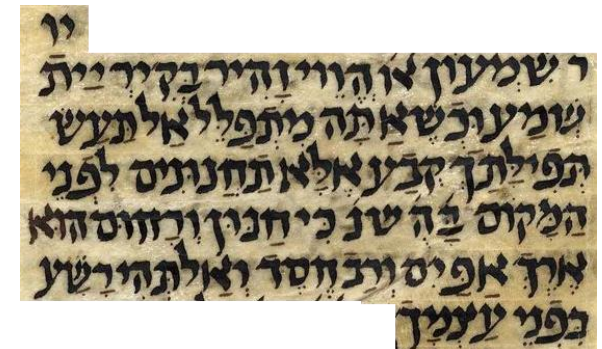 יו
ר שמעון או הווי זהיר בקיריית
שמע וכשאתה מתפלל אל תעש
תפילתך קבע אלא תחנונים לפני
המקום בה שנ כי חנון ורחום הוא
ארך אפים ורב חסד ואל תהי רשע
בפני עצמך